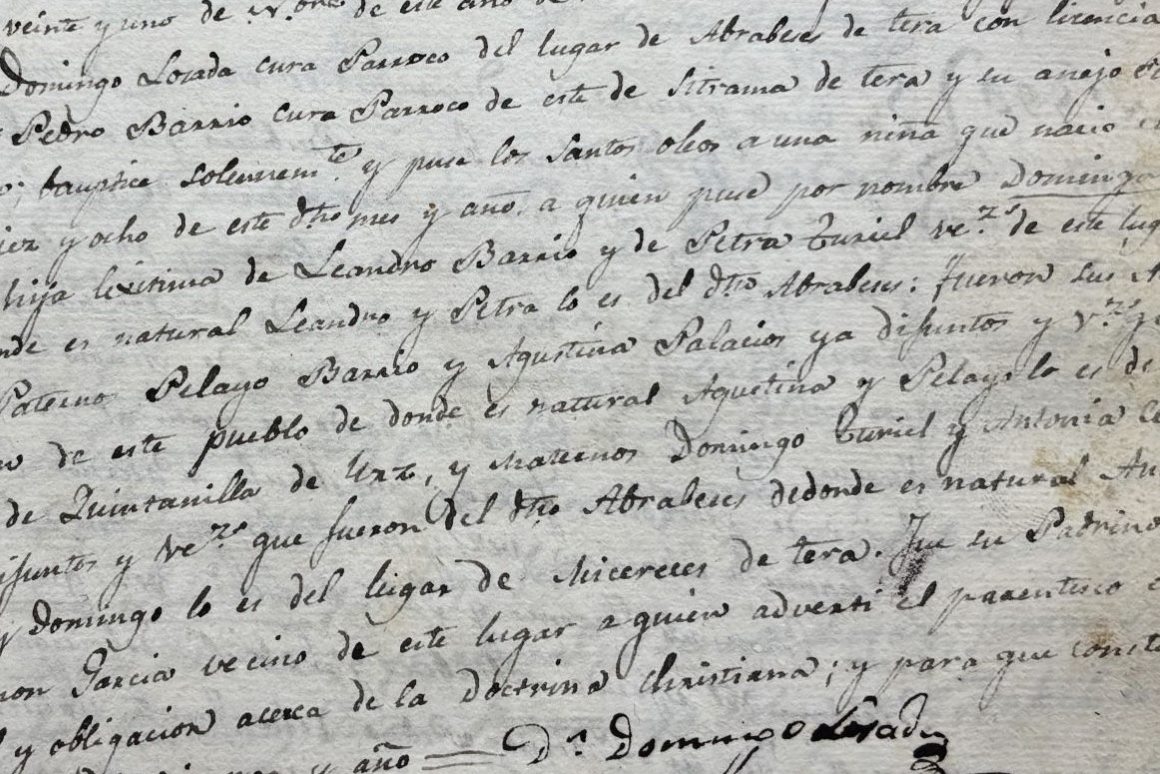 veinte y uno de N.bre de este año de
Domingo Losada cura Parroco del lugar de Abrabeses de tera con licencia
Pedro Barrio cura Parroco de este de Sitrama de tera y su anejo
bauptice solemnem.te y puse los santos oleos a una niña que nacio
y ocho de este dho mes y año, a quien puse por nombre Doming
hija lexitima de Leandro Barrio y de Petra Turiel vez.s de este lug
nde es natural Leandro y Petra lo es del dho Abrabeses: fueron sus A
Paterno Pelayo Barrio y Agustina Palacios ya difuntos y v.zs
de este pueblo de donde es natural Agustina y Pelayo lo es de
de Quintanilla de Urz, y Maternos Domingo Turiel y Antonia
ifuntos y vez.s que fueron del dho Abrabeses dedonde es natural An
y Domingo lo es del lugar de Micereces de tera. Fue su Padrino
mon Garcia vecino de este lugar a quien adverti el parentesco
y obligacion acerca de la Doctrina Christiana; y para que conste
y año = D.n Domingo Losada